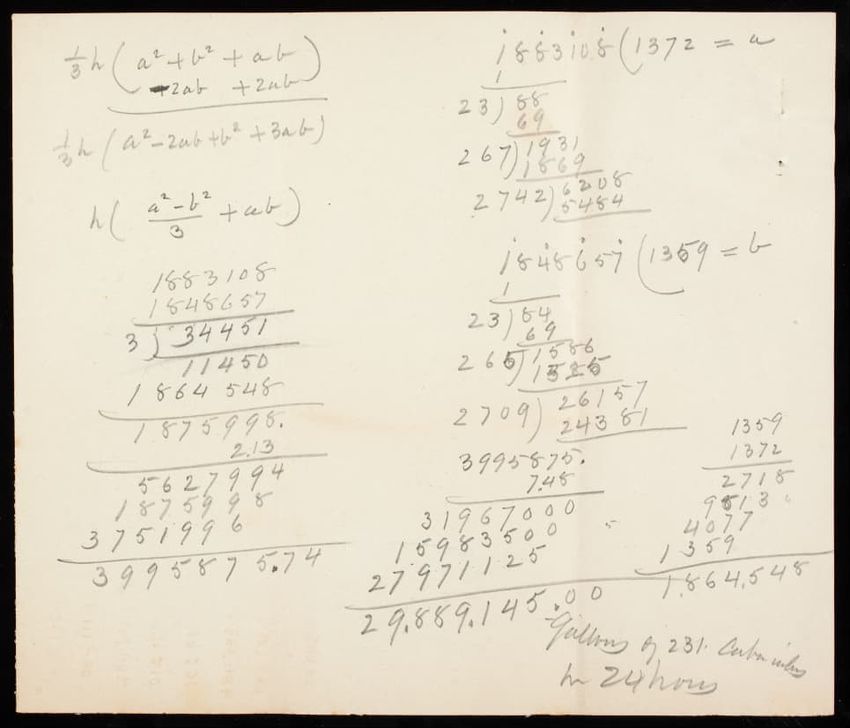 1/3 h ( a² + b² + ab
-2ab + 2ab )
1/3 h ( a² - 2ab + b² + 3ab )
h ( a² - b² / 3 + ab )
1883108
1848657
3 ) 34451
11450
1864548
1875998.
2.13
5627994
1875998
3751996
3995875.74
1883108 ( 1372 = a
1
23 ) 88
69
267 ) 1931
1869
2742 ) 6208
5484
1848657 ( 1359 = b
1
23 ) 84
69
265 ) 1586
1325
2709 ) 26157
24381
3995875.
7.48
31967000
15983500
27971125
29.889.145.00
gallons of 231. Cubic inches
in 24 hours
1359
1372
2718
9513
4077
1359
1.864.548